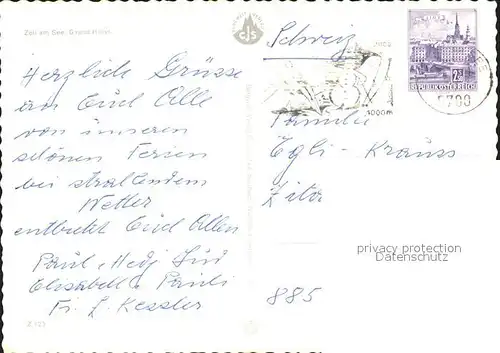 Zell am See, Grand Hotel
cjs
Schweiz
2000 m
1000 m
REPUBLIK ÖSTERREICH
5700
Herzlich Grüsse
an Euch Alle
von unseren
schönen Ferien
bei strahlendem
Wetter
entbietet Euch Allen
Paul, Hedj
Elisabeth Pauli
Fr. L. Kessler
Familie
Egli - Krauss
privacy protection
Datenschutz
885